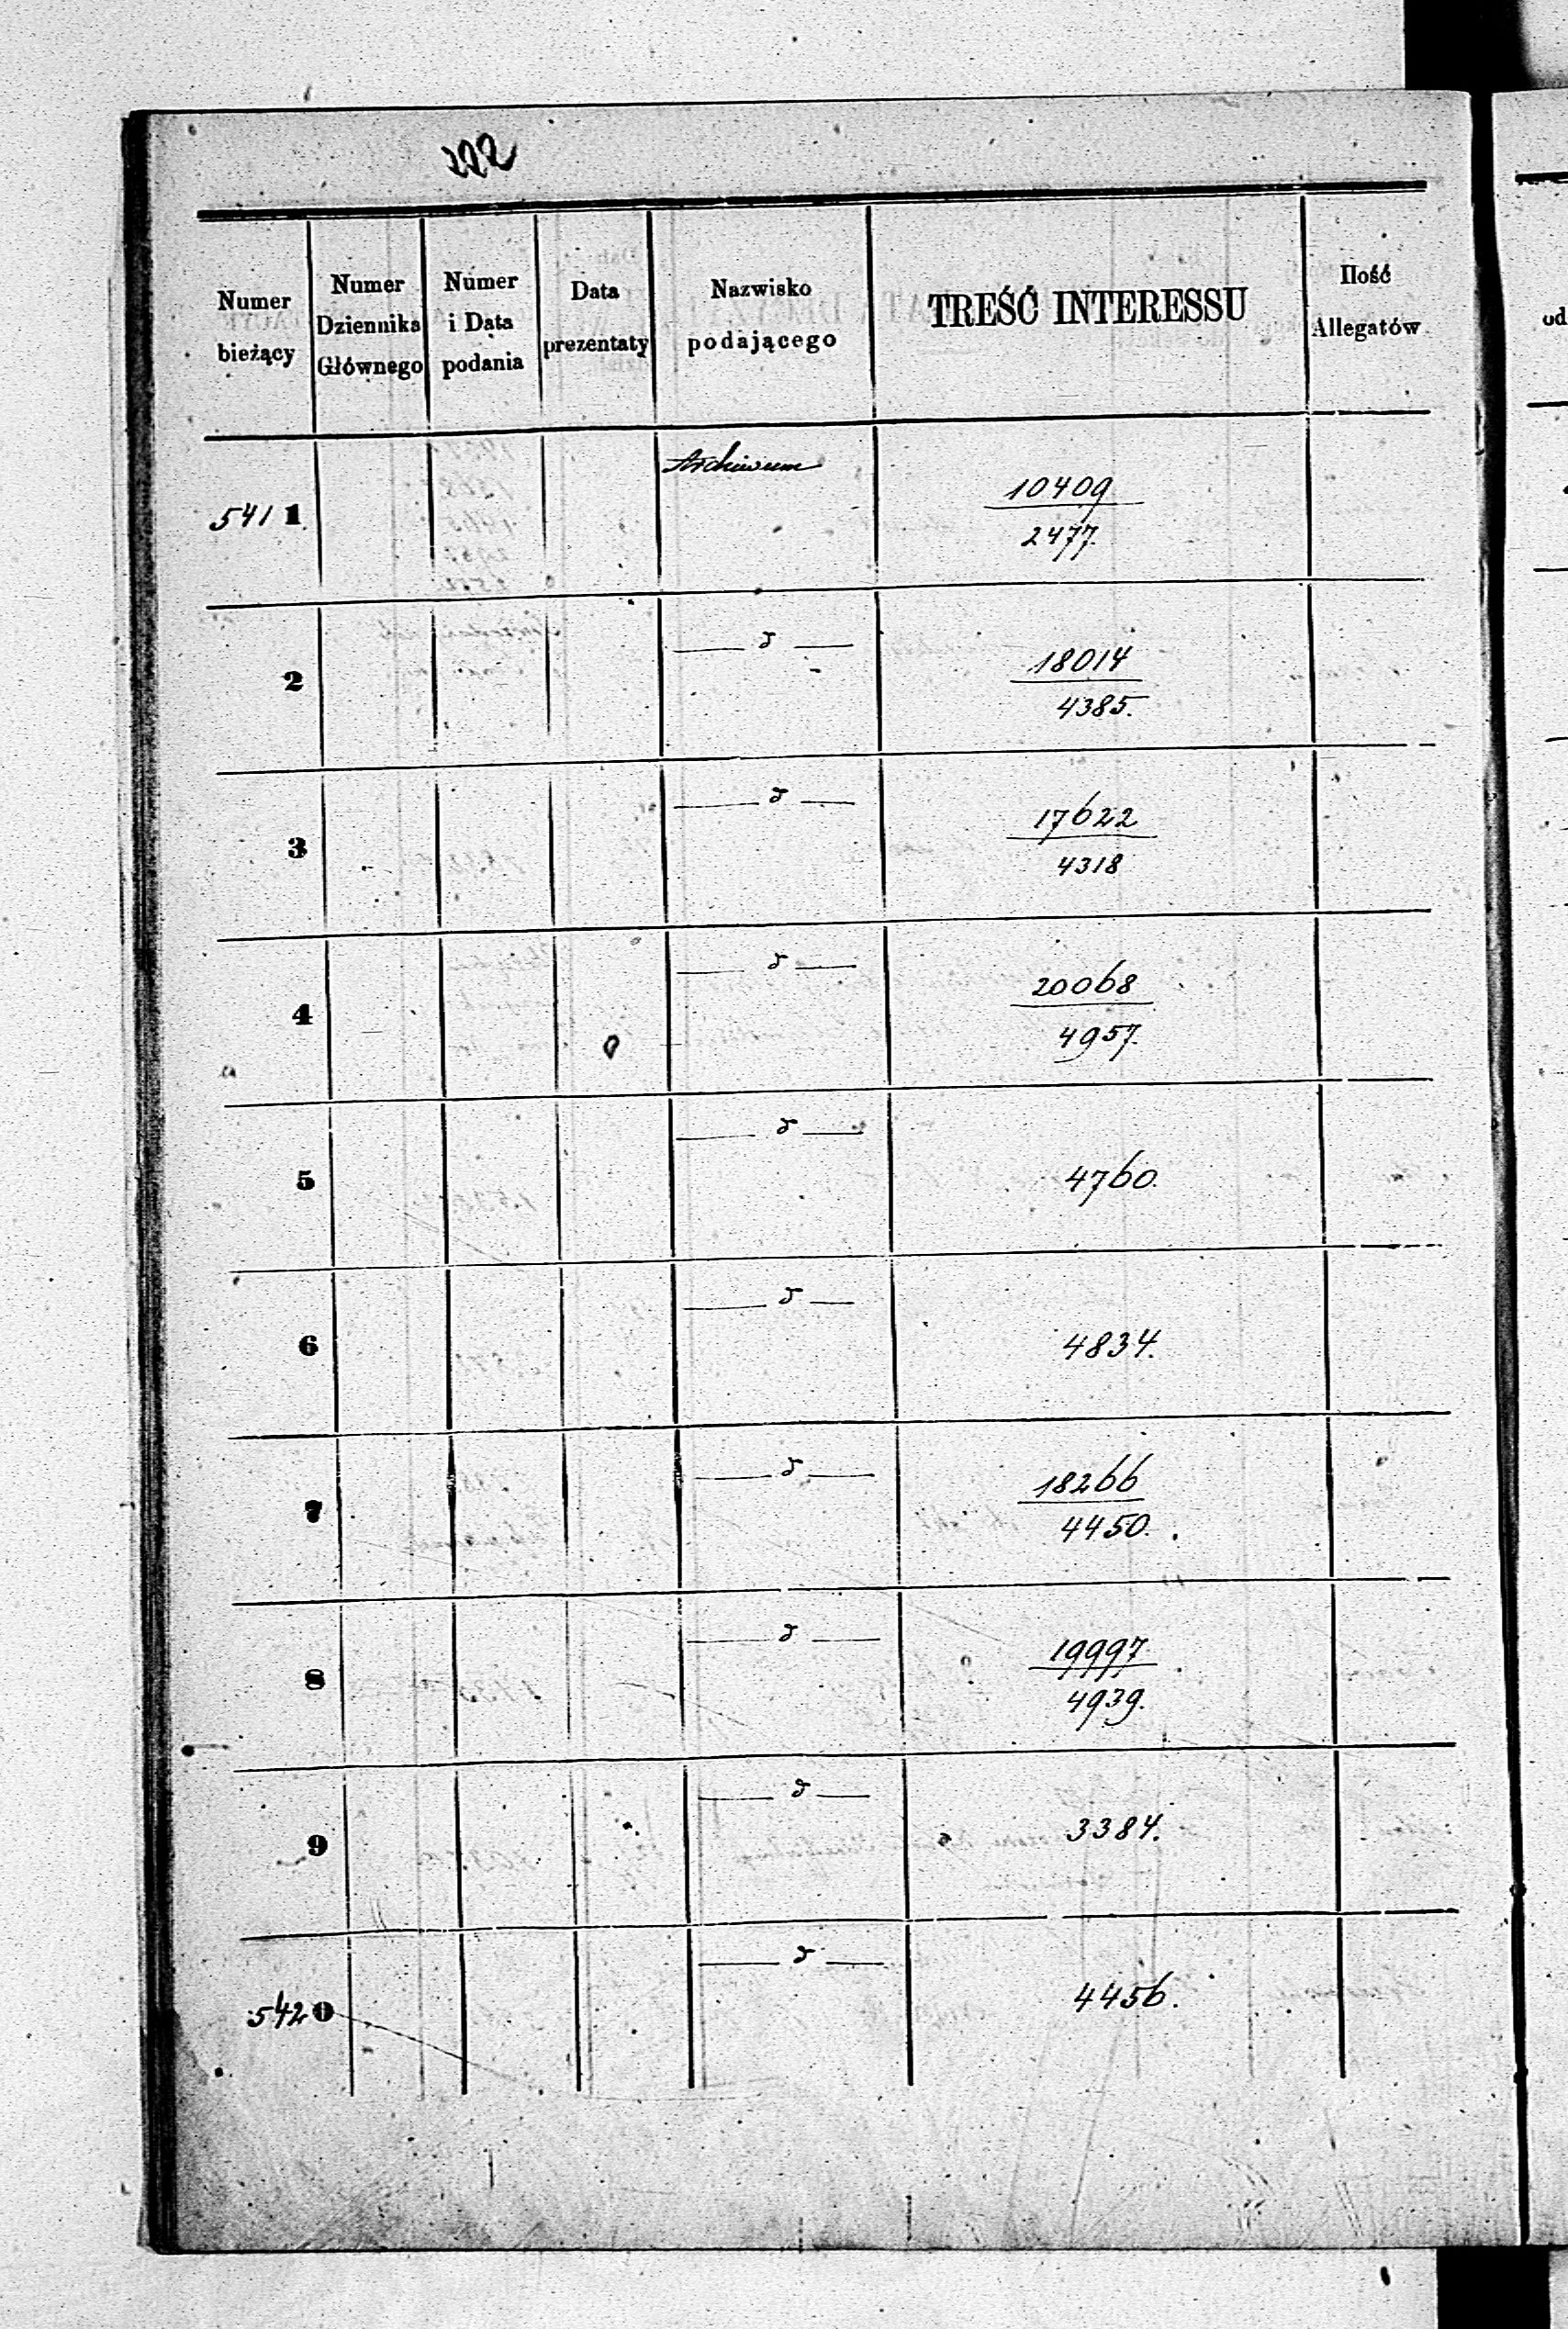 Numer bieżący
Numer Dziennika Głównego
Numer i Data podania
Data prezentaty
Nazwisko podającego
TREŚĆ INTERESSU
Ilość Allegatów
5411
Archiwum
10409
2477.
2
— d —
18014
4385.
3
— d —
17622
4318
4
— d —
20068
4957.
5
— d —
4760.
6
— d —
4834.
7
— d —
18266
4450.
8
— d —
19997
4939.
9
— d —
3384.
5420
— d —
4456.
od